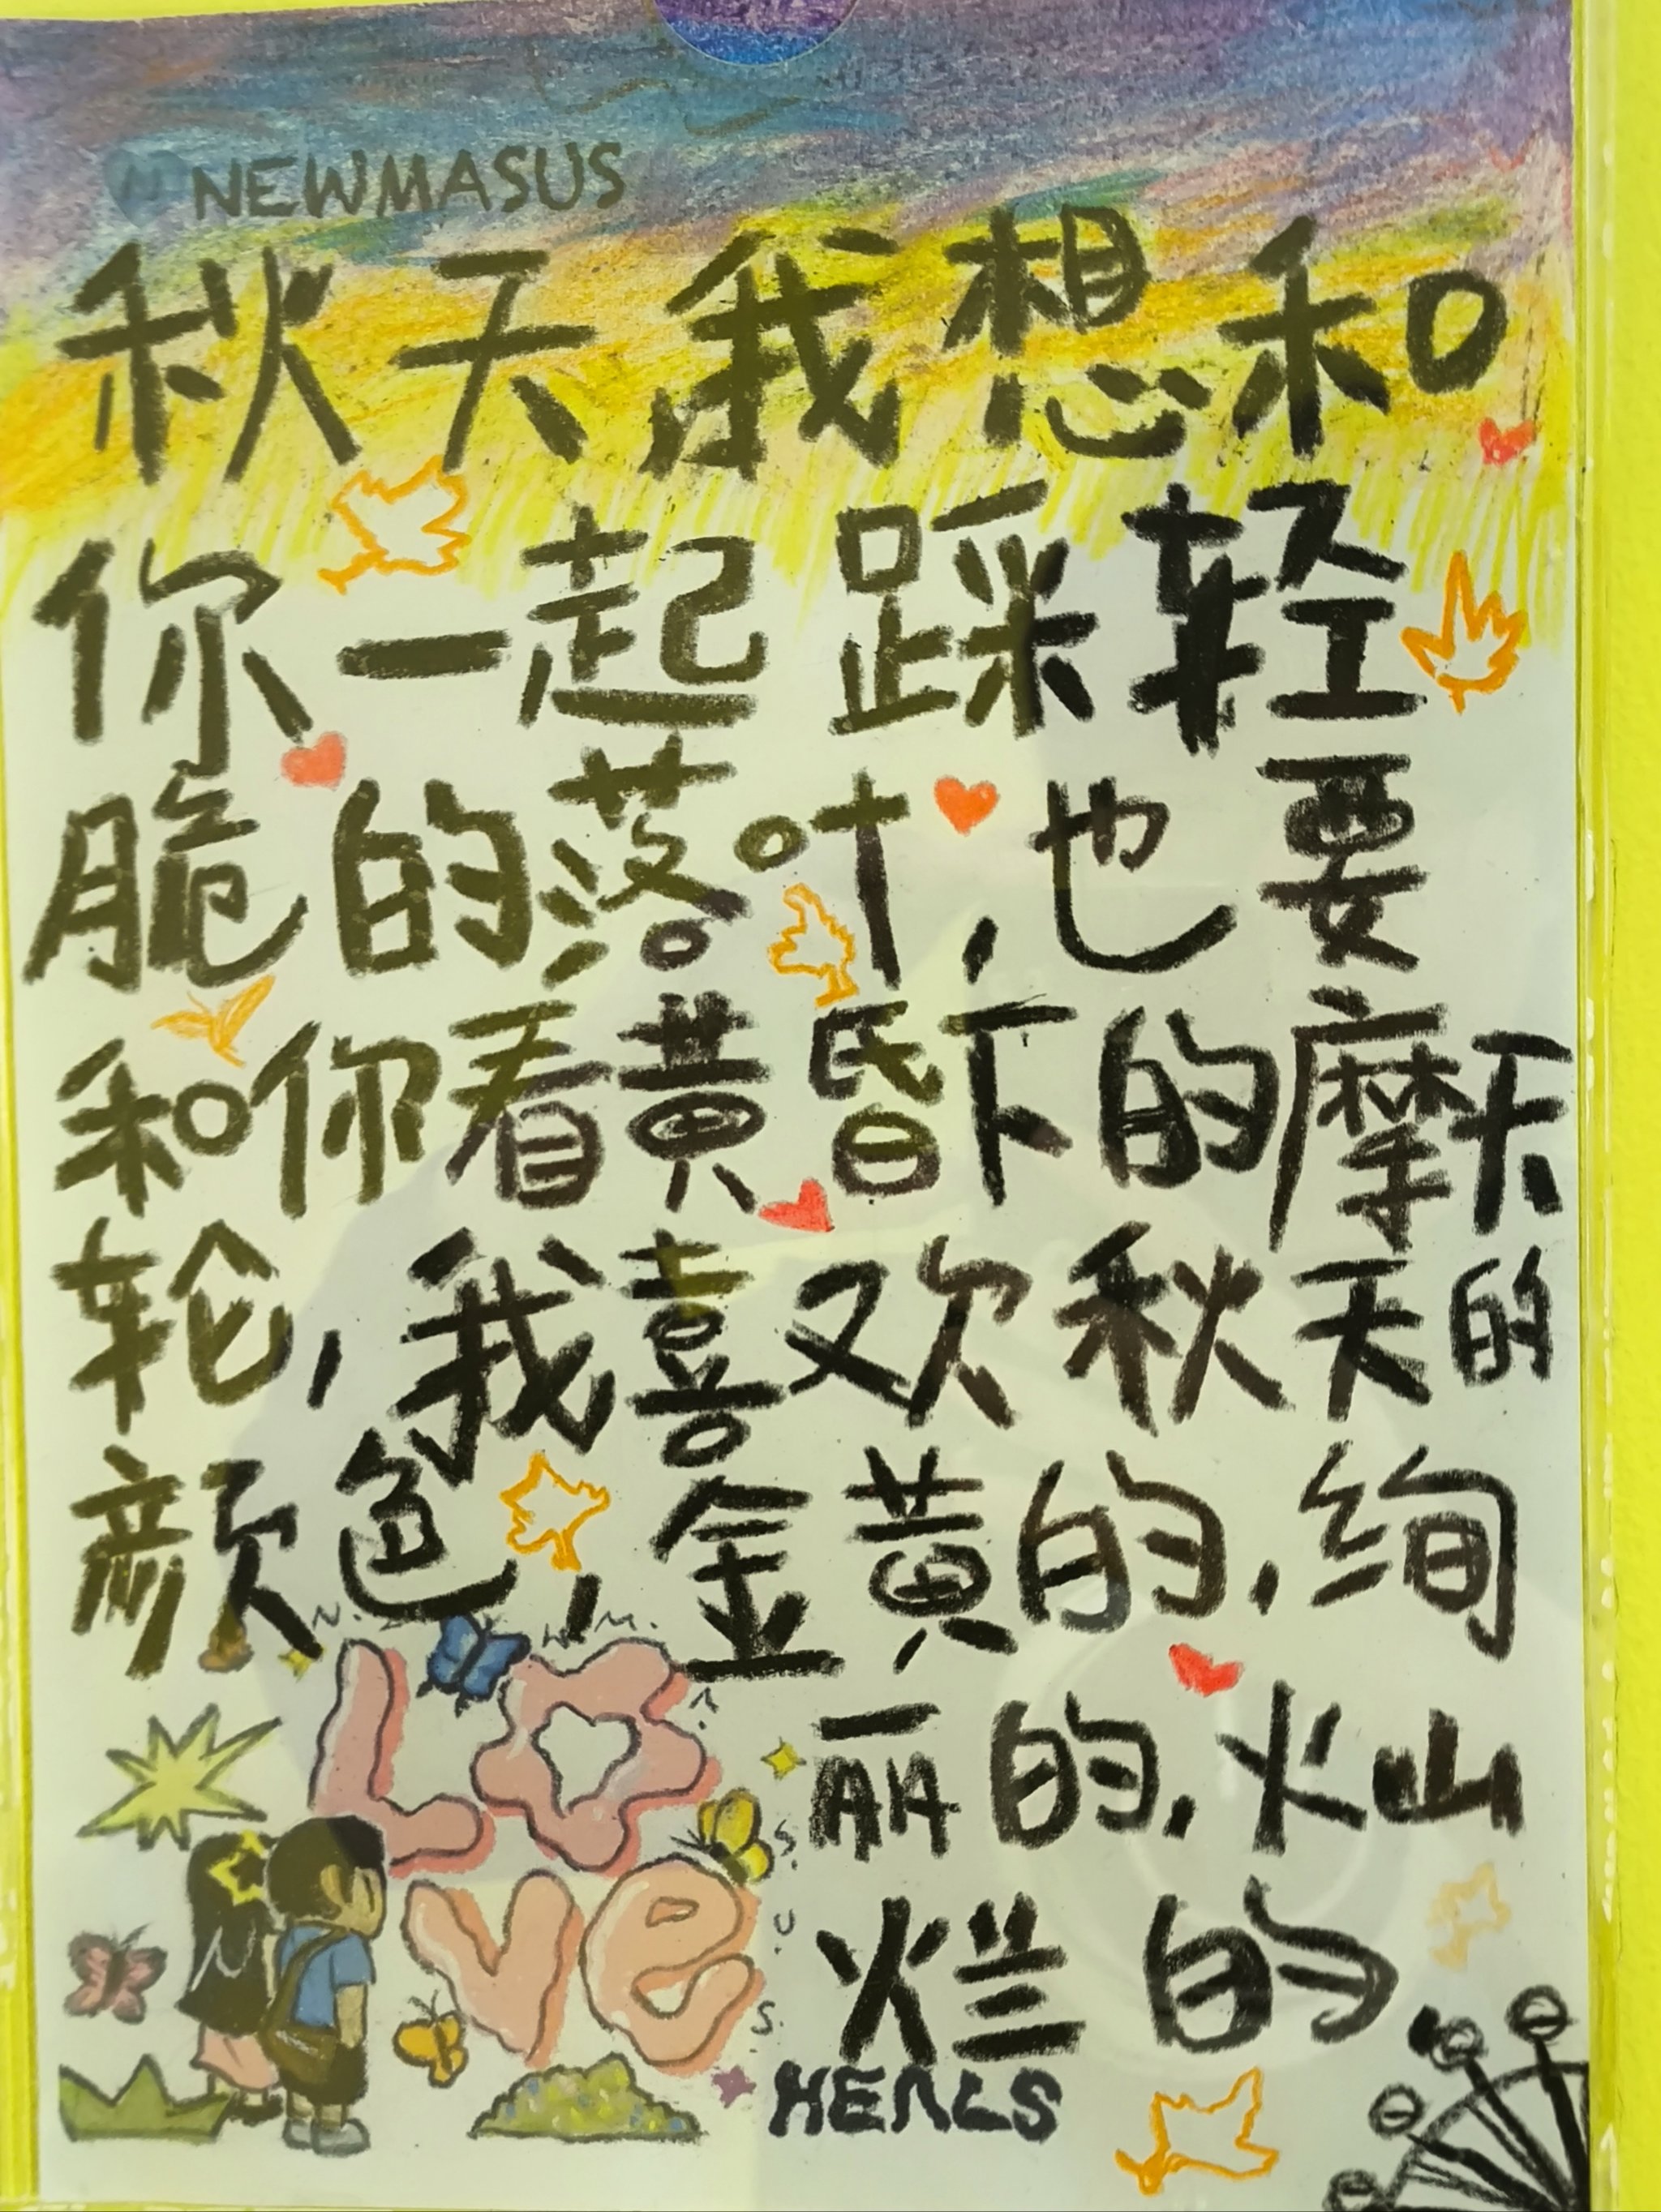 NEWMASUS
秋天我想和
你一起踩轻
脆的落叶,也要
和你看黄昏下的摩天
轮,我喜欢秋天的
颜色,金黄的,绚
丽的,火山
烂的
LOVe
HEALS